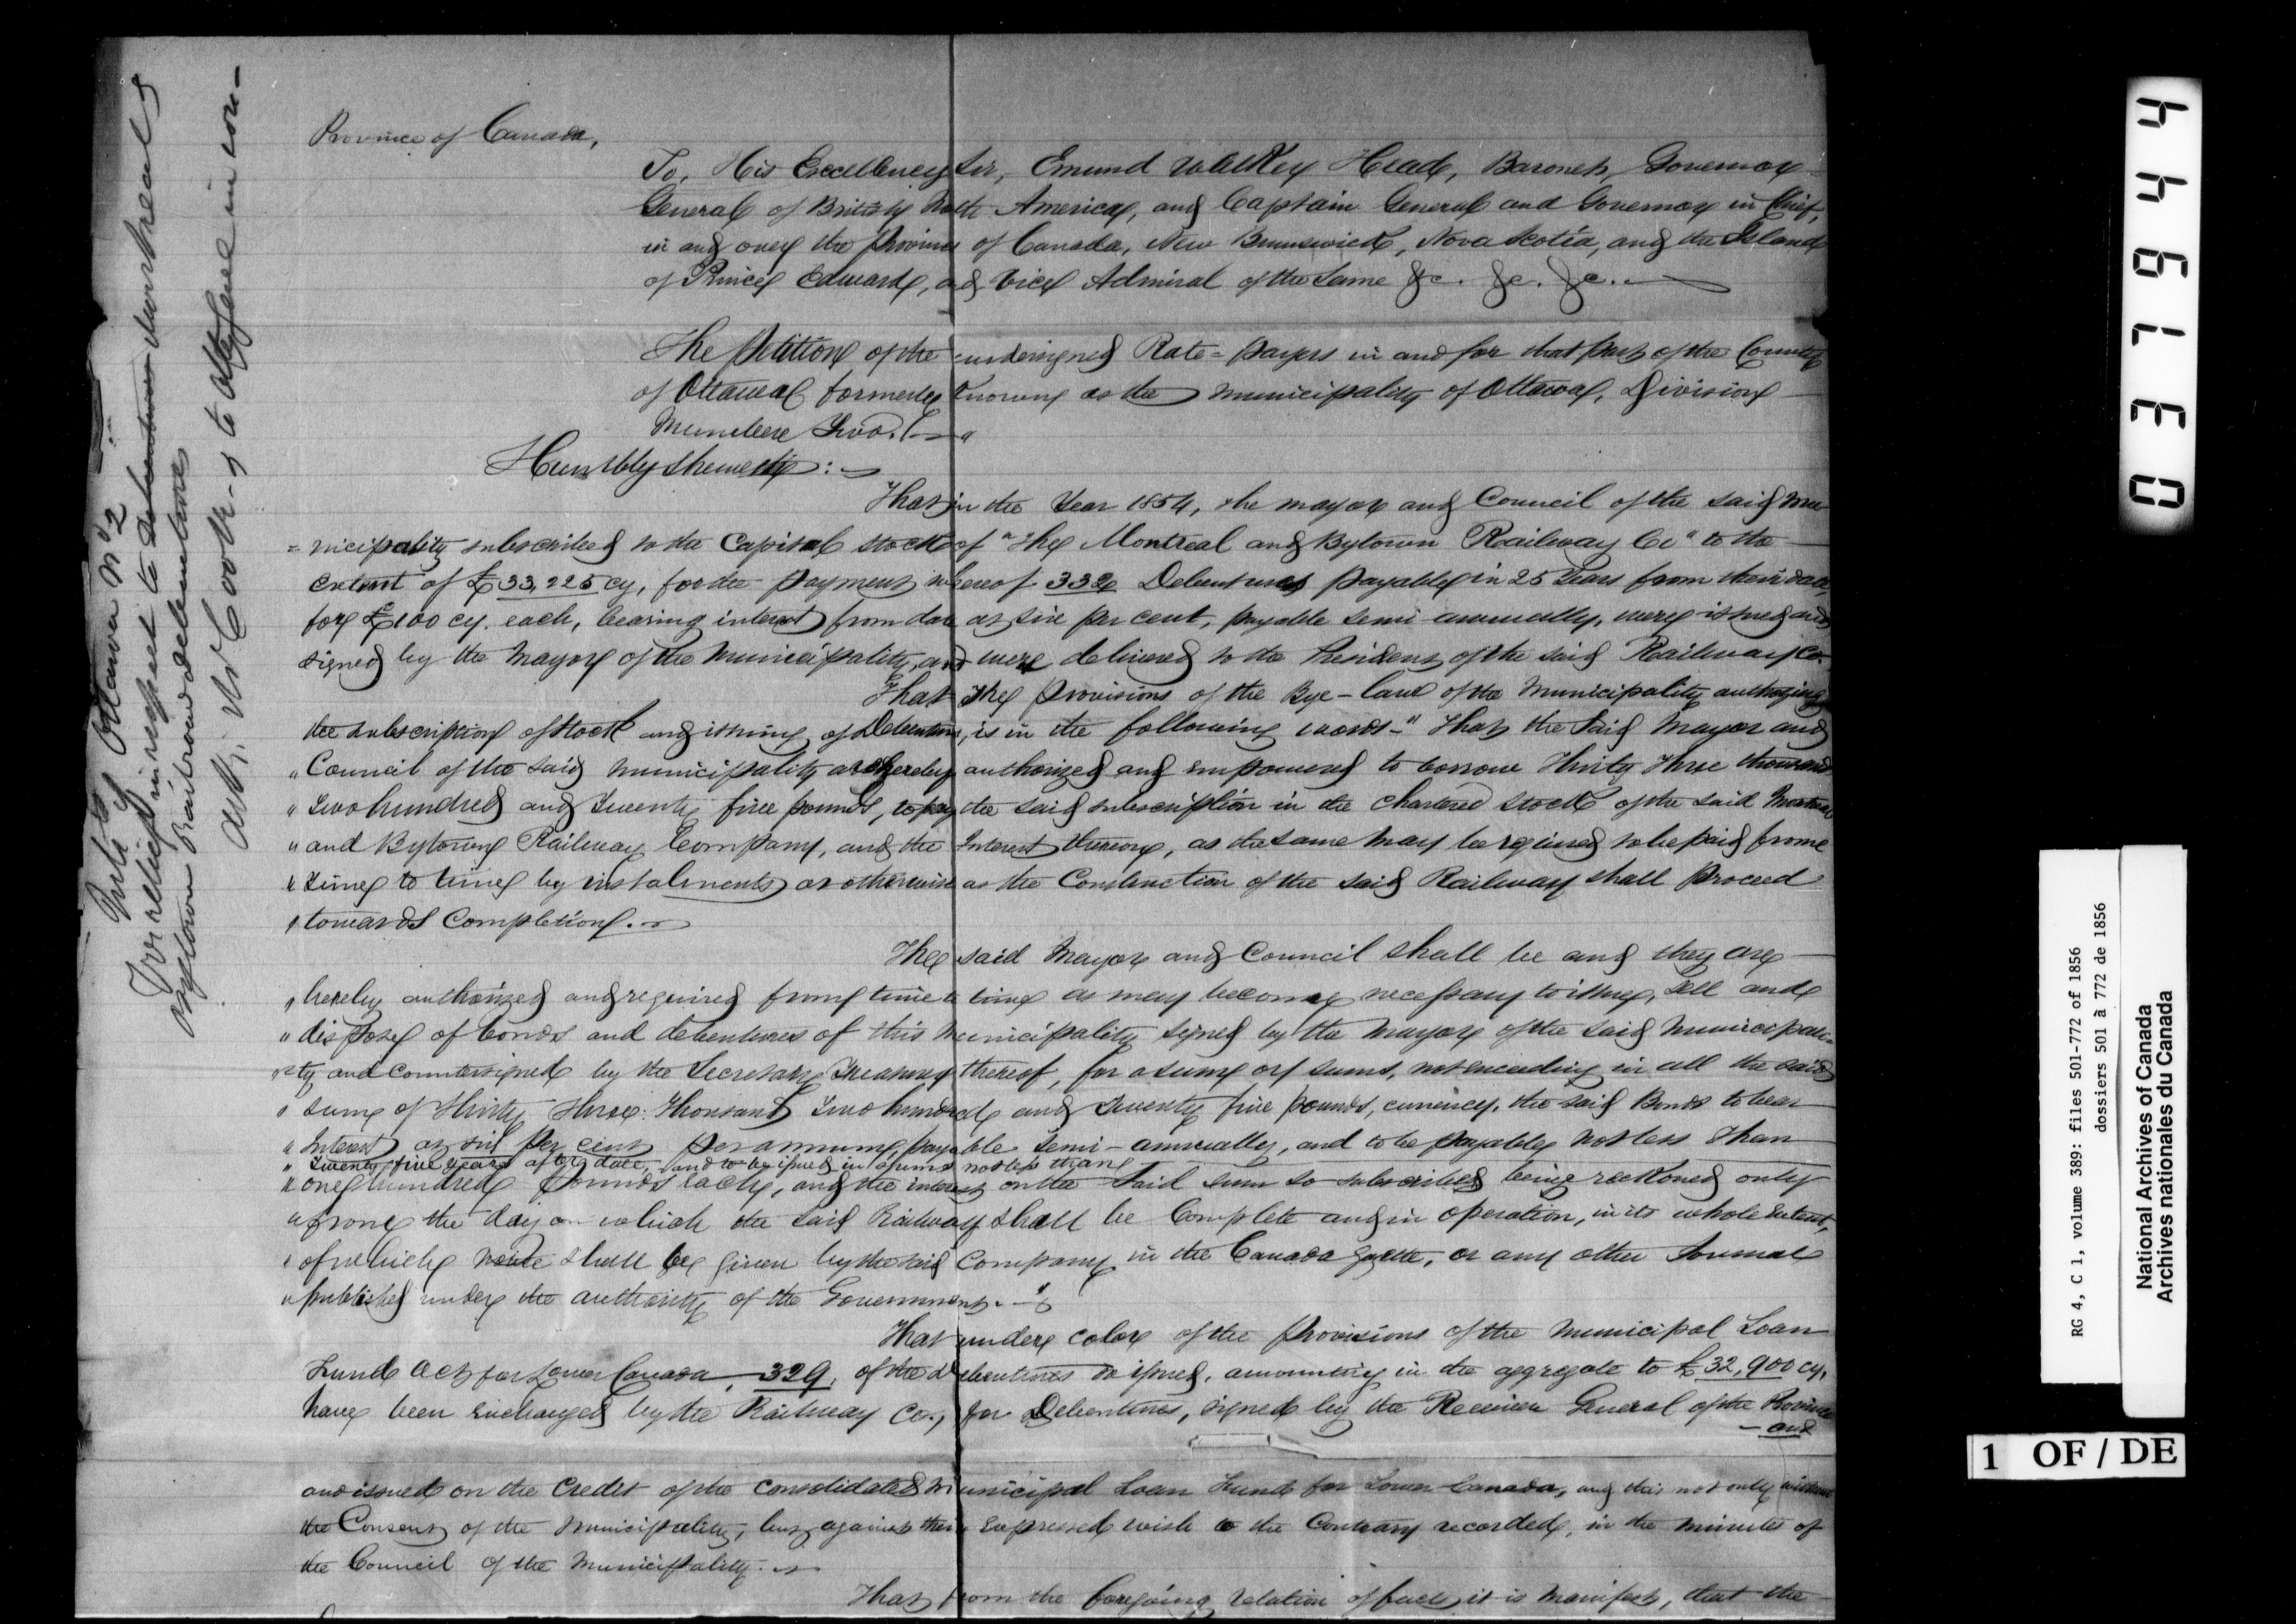 Province of Canada,
To, His Excellency Sir, Emund Walker Head, Baronet, Governor
General of British North America, and Captain General and Governor in Chief,
in and over the Province of Canada, New Brunswick, Nova Scotia, and the Island
of Prince Edward, and Vice Admiral of the Same &c. &c. &c.
The Petition of the undersigned Rate-payers in and for that part of the County
of Ottawa formerly Known as the Municipality of Ottawa, Division
Number Two.
Humbly Sheweth:
That in the Year 1854, the Mayor and Council of the said Mu-
=nicipality subscribed to the Capital stock of "The Montreal and Bytown Railway Co" to the
extent of £33,225 cy, for the payment whereof 332 Debentures payable in 25 Years from their date,
for £100 cy. each, bearing interest from date at six per cent, payable semi-annually, were issued and
signed by the Mayor of the Municipality, and were delivered to the President of the said Railway Co.
That the provisions of the Bye-law of the Municipality authorizing
the subscription of stock and issuing of Debentures, is in the following words-" That the Said Mayor and
" Council of the said Municipality are hereby authorized and empowered to borrow Thirty Three thousand
" Two hundred and Twenty five pounds, to pay the said subscription in the Chartered Stock of the said Montreal
" and Bytown Railway Company, and the Interest thereon, as the same may be required to be paid from
" time to time by instalments or otherwise as the Construction of the said Railway shall proceed
" towards Completion.
The said Mayor and Council shall be and they are
" hereby authorized and required from time to time as may become necessary to issue, sell and
" dispose of bonds and debentures of this Municipality signed by the Mayor of the said Municipali-
"=ty and countersigned by the Secretary Treasurer thereof, for a sum or sums, not exceeding in all the said
" sum of Thirty Three Thousand Two hundred and Twenty five pounds, currency, the said Bonds to bear
" Interest at six per cent per annum, payable Semi-annually, and to be payable not less than
" Twenty five years after date, and to be issued in sums not less than
" one hundred pounds each, and the interest on the said sum so subscribed being reckoned only
" from the day on which the said Railway shall be Complete and in operation, in its whole extent,
" of which notice shall be given by the said Company in the Canada Gazette, or any other Journal
" published under the authority of the Government."
That under color of the provisions of the Municipal Loan
Fund Act for Lower Canada, 329, of the debentures so issued, amounting in the aggregate to £32,900 cy,
have been exchanged by the Railway Co., for Debentures, signed by the Receiver General of the Province
-and
and issued on the Credit of the Consolidated Municipal Loan Fund for Lower Canada, and this not only without
the Consent of the Municipality, but against their expressed wish to the Contrary recorded, in the minutes of
the Council of the Municipality.
That from the foregoing relation of facts it is manifest, that the
Munity Ottawa No 2
For relief in respect to Montreal &
Bytown Railroad debentures
Mr Cook to in con-
0 3 7 9 4 4
RG 4, C 1, volume 389: files 501-772 of 1856
dossiers 501 à 772 de 1856
National Archives of Canada
Archives nationales du Canada
1 OF / DE